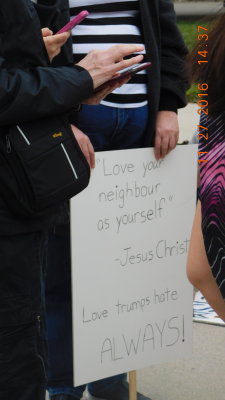 "Love your
neighbour
as yourself"
-Jesus Christ
Love trumps hate
ALWAYS!
11.27.2016 14:37